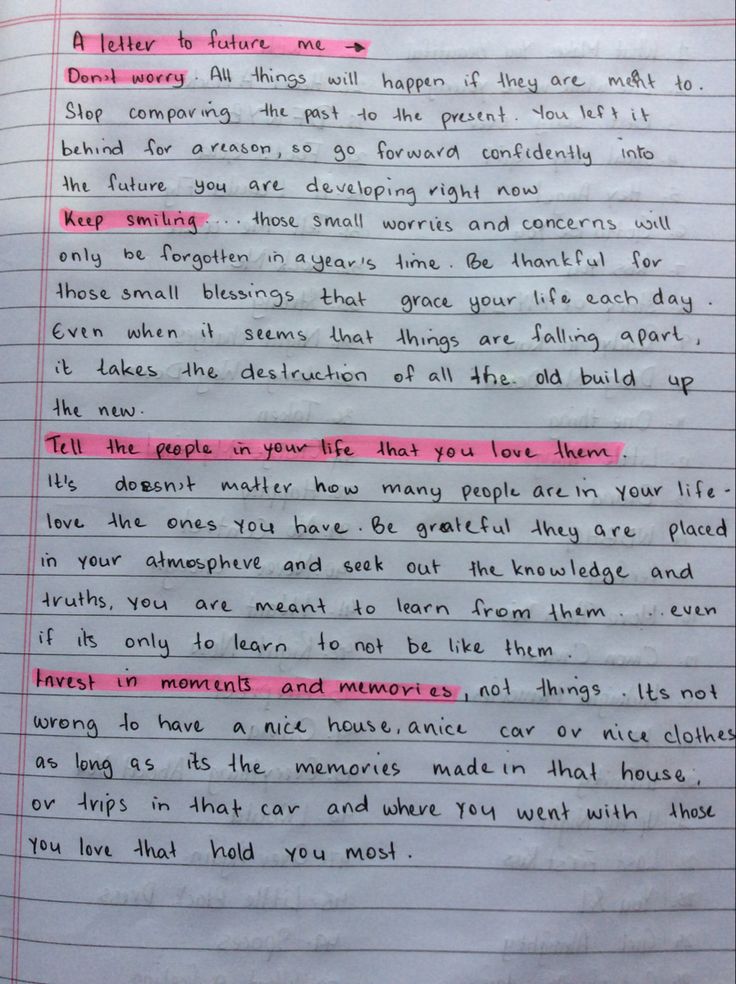 A letter to future me →
Don't worry. All things will happen if they are meant to.
Stop comparing the past to the present. You left it
behind for a reason, so go forward confidently into
the future you are developing right now
Keep smiling.... those small worries and concerns will
only be forgotten in a year's time. Be thankful for
those small blessings that grace your life each day.
Even when it seems that things are falling apart,
it takes the destruction of all the old build up
the new.
Tell the people in your life that you love them.
It's doesn't matter how many people are in your life -
love the ones you have. Be grateful they are placed
in your atmosphere and seek out the knowledge and
truths, you are meant to learn from them.....even
if its only to learn to not be like them.
Invest in moments and memories, not things. It's not
wrong to have a nice house, a nice car or nice clothes
as long as its the memories made in that house,
or trips in that car and where you went with those
you love that hold you most.